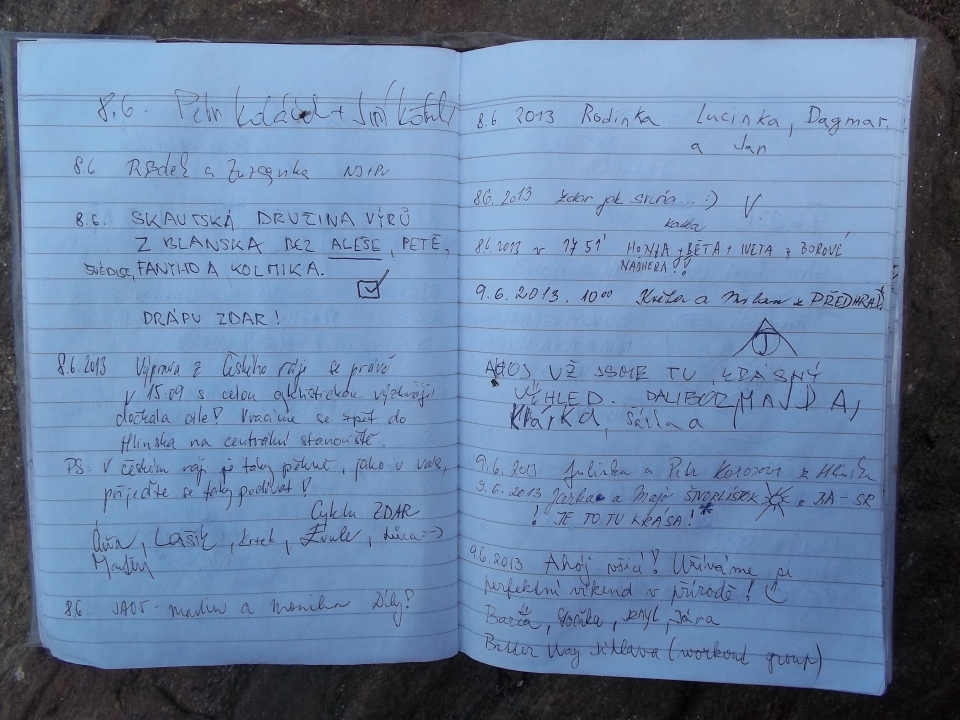 8.6. Petr + Jiří
8.6 Radek a Zuzanka
8.6. SKAUTSKÁ DRUŽINA VÝRŮ
Z BLANSKA BEZ ALEŠE, PETĚ,
FANYHO A KOLMIKA.
DRÁPU ZDAR!
8.6.2013 Výprava z Českého ráje se právě
v 15:09 s celou cyklistickou
dočkala cíle! Vracíme se zpět do
Hlinska na centrální stanoviště.
PS: V českém ráji je taky pěkně, jako u vás,
přijeďte se taky podívat!
Cyklu ZDAR
Áňa, LAŠIK, Krtek,
Martin
8.6. a Monika Díky!
8.6. 2013 Rodinka Lucinka, Dagmar.
a Jan
8.6. 2013 Zdar jak sviňa.. :) V.
Katka
8.6.2013 v 17 51' HONZA + BĚTA + IVETA z BOROVÉ
NÁDHERA!!
9.6.2013. 10⁰⁰ Květa a Milan z PŘEDHRADÍ
J
AHOJ UŽ JSME TU, KRÁSNÝ
VÝHLED. DALIBOR, MAJDA,
Klárka,
9.6.2013 Julinka a Petr z Hlinska
9.6.2013 Jarka a Majo ŠTVORLÍSTOK BA-SR
! JE TO TU KRÁSA!
9.6.2013 Ahoj všici! Užíváme si
perfektní víkend v přírodě!
Barča, Jára
Better Way Jihlava (workout group)